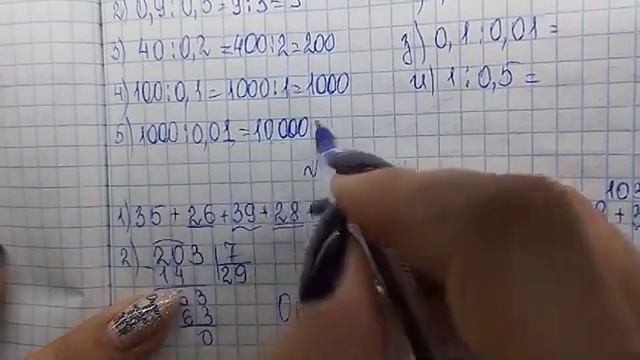 2) 0,9:0,3=9:3=3
3) 40:0,2=400:2=200
4) 100:0,1=1000:1=1000
5) 1000:0,01=10000
з) 0,1:0,01=
и) 1:0,5=
1) 35+26+39+28+
103
2) 203 7
14 29
63
63
0